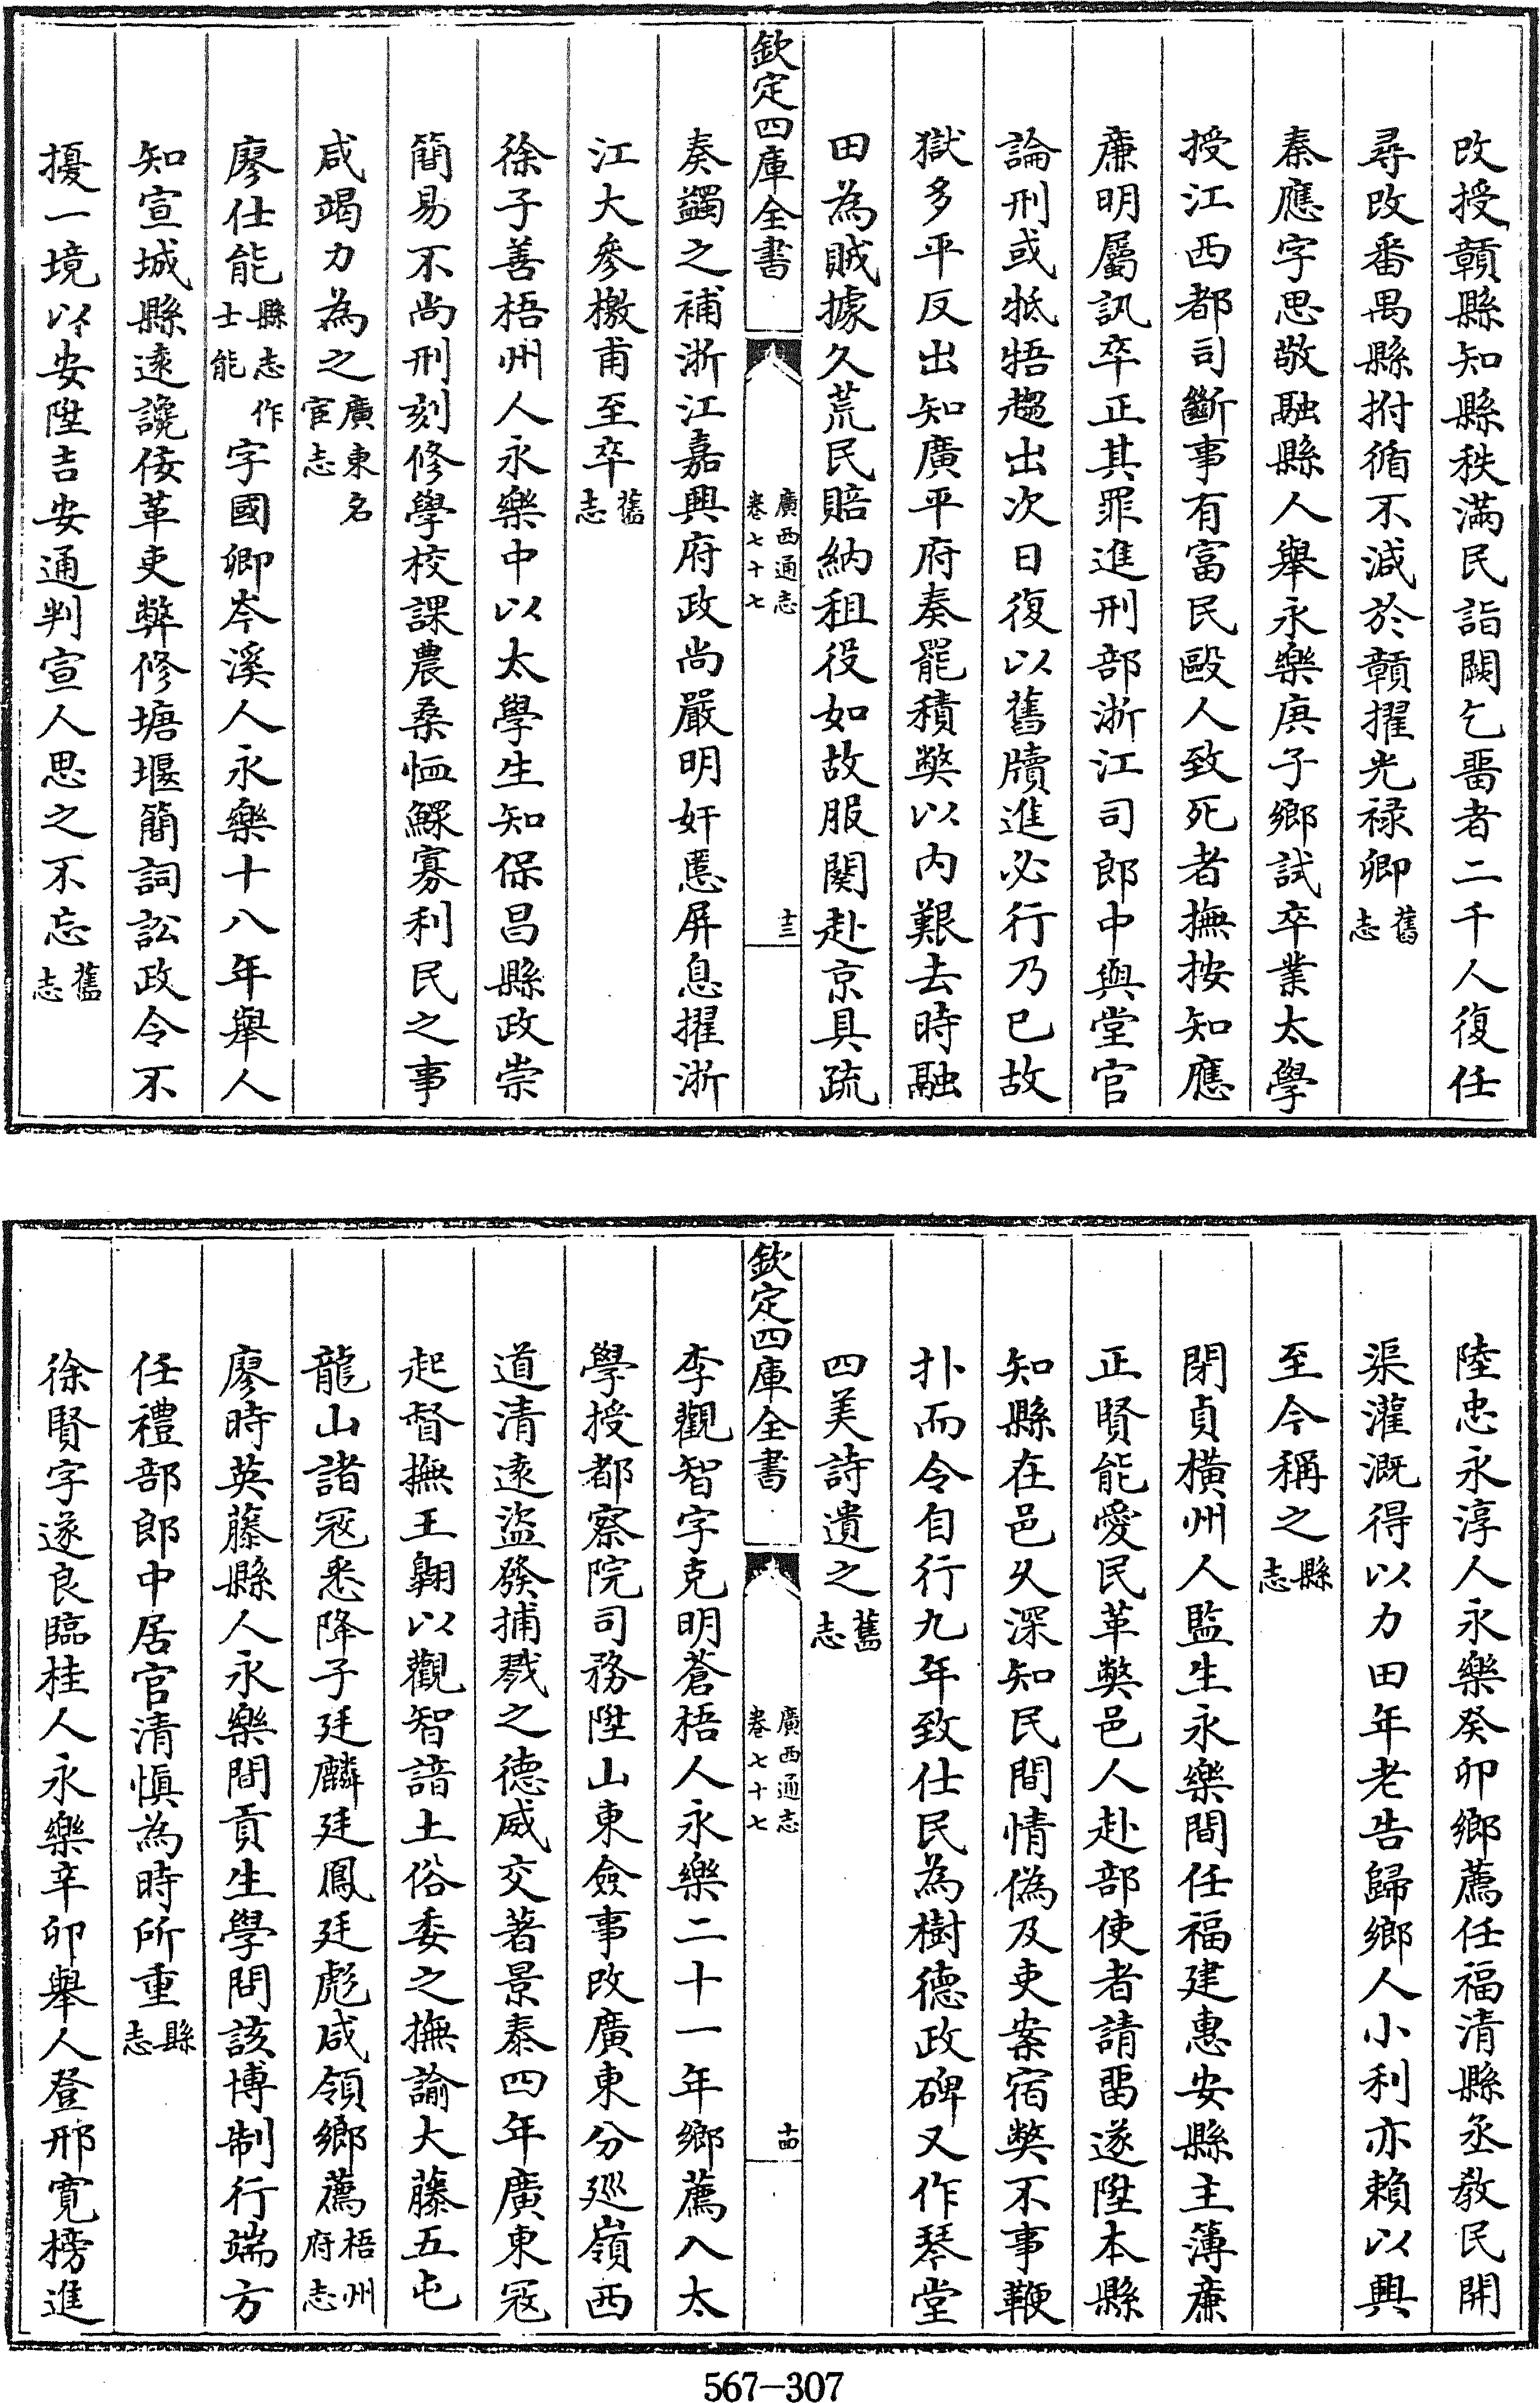 改授贛縣知縣秩滿民詣闕乞畱者二千人復任
尋改番禺縣拊循不減於贛擢光禄卿舊志
秦應字思敬融縣人舉永樂庚子鄉試卒業太學
授江西都司斷事有富民毆人致死者撫按知應
廉明屬訊卒正其罪進刑部浙江司郎中與堂官
論刑或牴牾趨出次日復以舊牘進必行乃已故
獄多平反出知廣平府奏罷積獘以內艱去時融
田為賊據久荒民賠納租役如故服闋赴京具疏
欽定四庫全書
廣西通志
卷七十七
十三
奏蠲之補浙江嘉興府政尚嚴明奸慝屏息擢浙
江大參檄甫至卒舊志
徐子善梧州人永樂中以太學生知保昌縣政崇
簡易不尚刑刻修學校課農桑恤鰥寡利民之事
咸竭力為之廣東名宦志
廖仕能縣志作士能字國卿岑溪人永樂十八年舉人
知宣城縣遠讒佞革吏弊修塘堰簡詞訟政令不
擾一境以安陞吉安通判宣人思之不忘舊志
陸忠永淳人永樂癸卯鄉薦任福清縣丞教民開
渠灌溉得以力田年老告歸鄉人小利亦賴以興
至今稱之縣志
閉貞橫州人監生永樂間任福建惠安縣主簿廉
正賢能愛民革獘邑人赴部使者請畱遂陞本縣
知縣在邑久深知民間情偽及吏案宿獘不事鞭
扑而令自行九年致仕民為樹德政碑又作琴堂
四美詩遺之舊志
欽定四庫全書
廣西通志
卷七十七
十四
李觀智字克明蒼梧人永樂二十一年鄉薦入太
學授都察院司務陞山東僉事改廣東分廵嶺西
道清遠盜發捕戮之德威交著景泰四年廣東冦
起督撫王翱以觀智諳土俗委之撫諭大藤五屯
龍山諸冦悉降子廷麟廷鳳廷彪咸領鄉薦梧州府志
廖時英藤縣人永樂間貢生學問該博制行端方
任禮部郎中居官清慎為時所重縣志
徐賢字遂良臨桂人永樂辛卯舉人登邢寬榜進
567-307